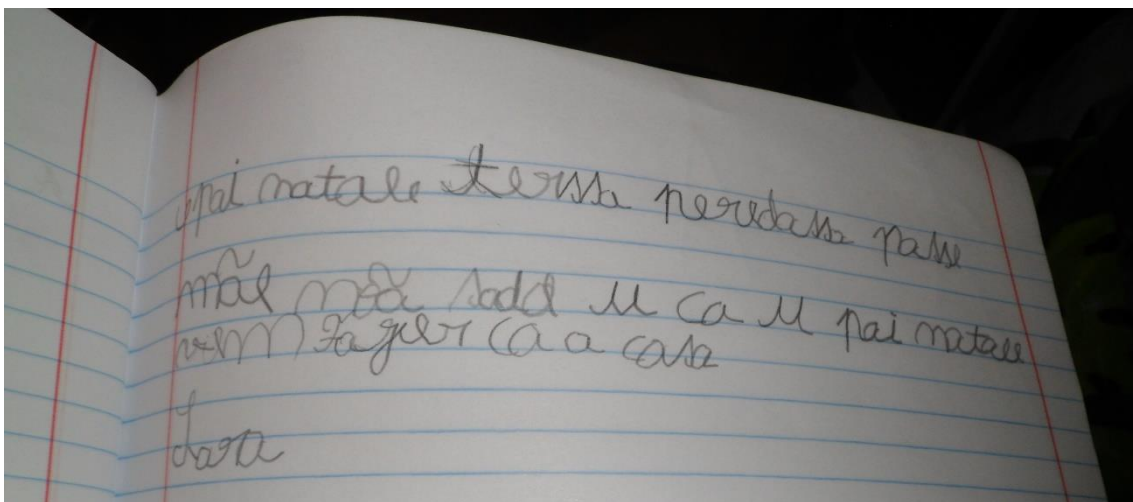 pai natale terssa peredassa passe
mãe não sadd u ca u pai natale
vem fager ca a casa
Lara